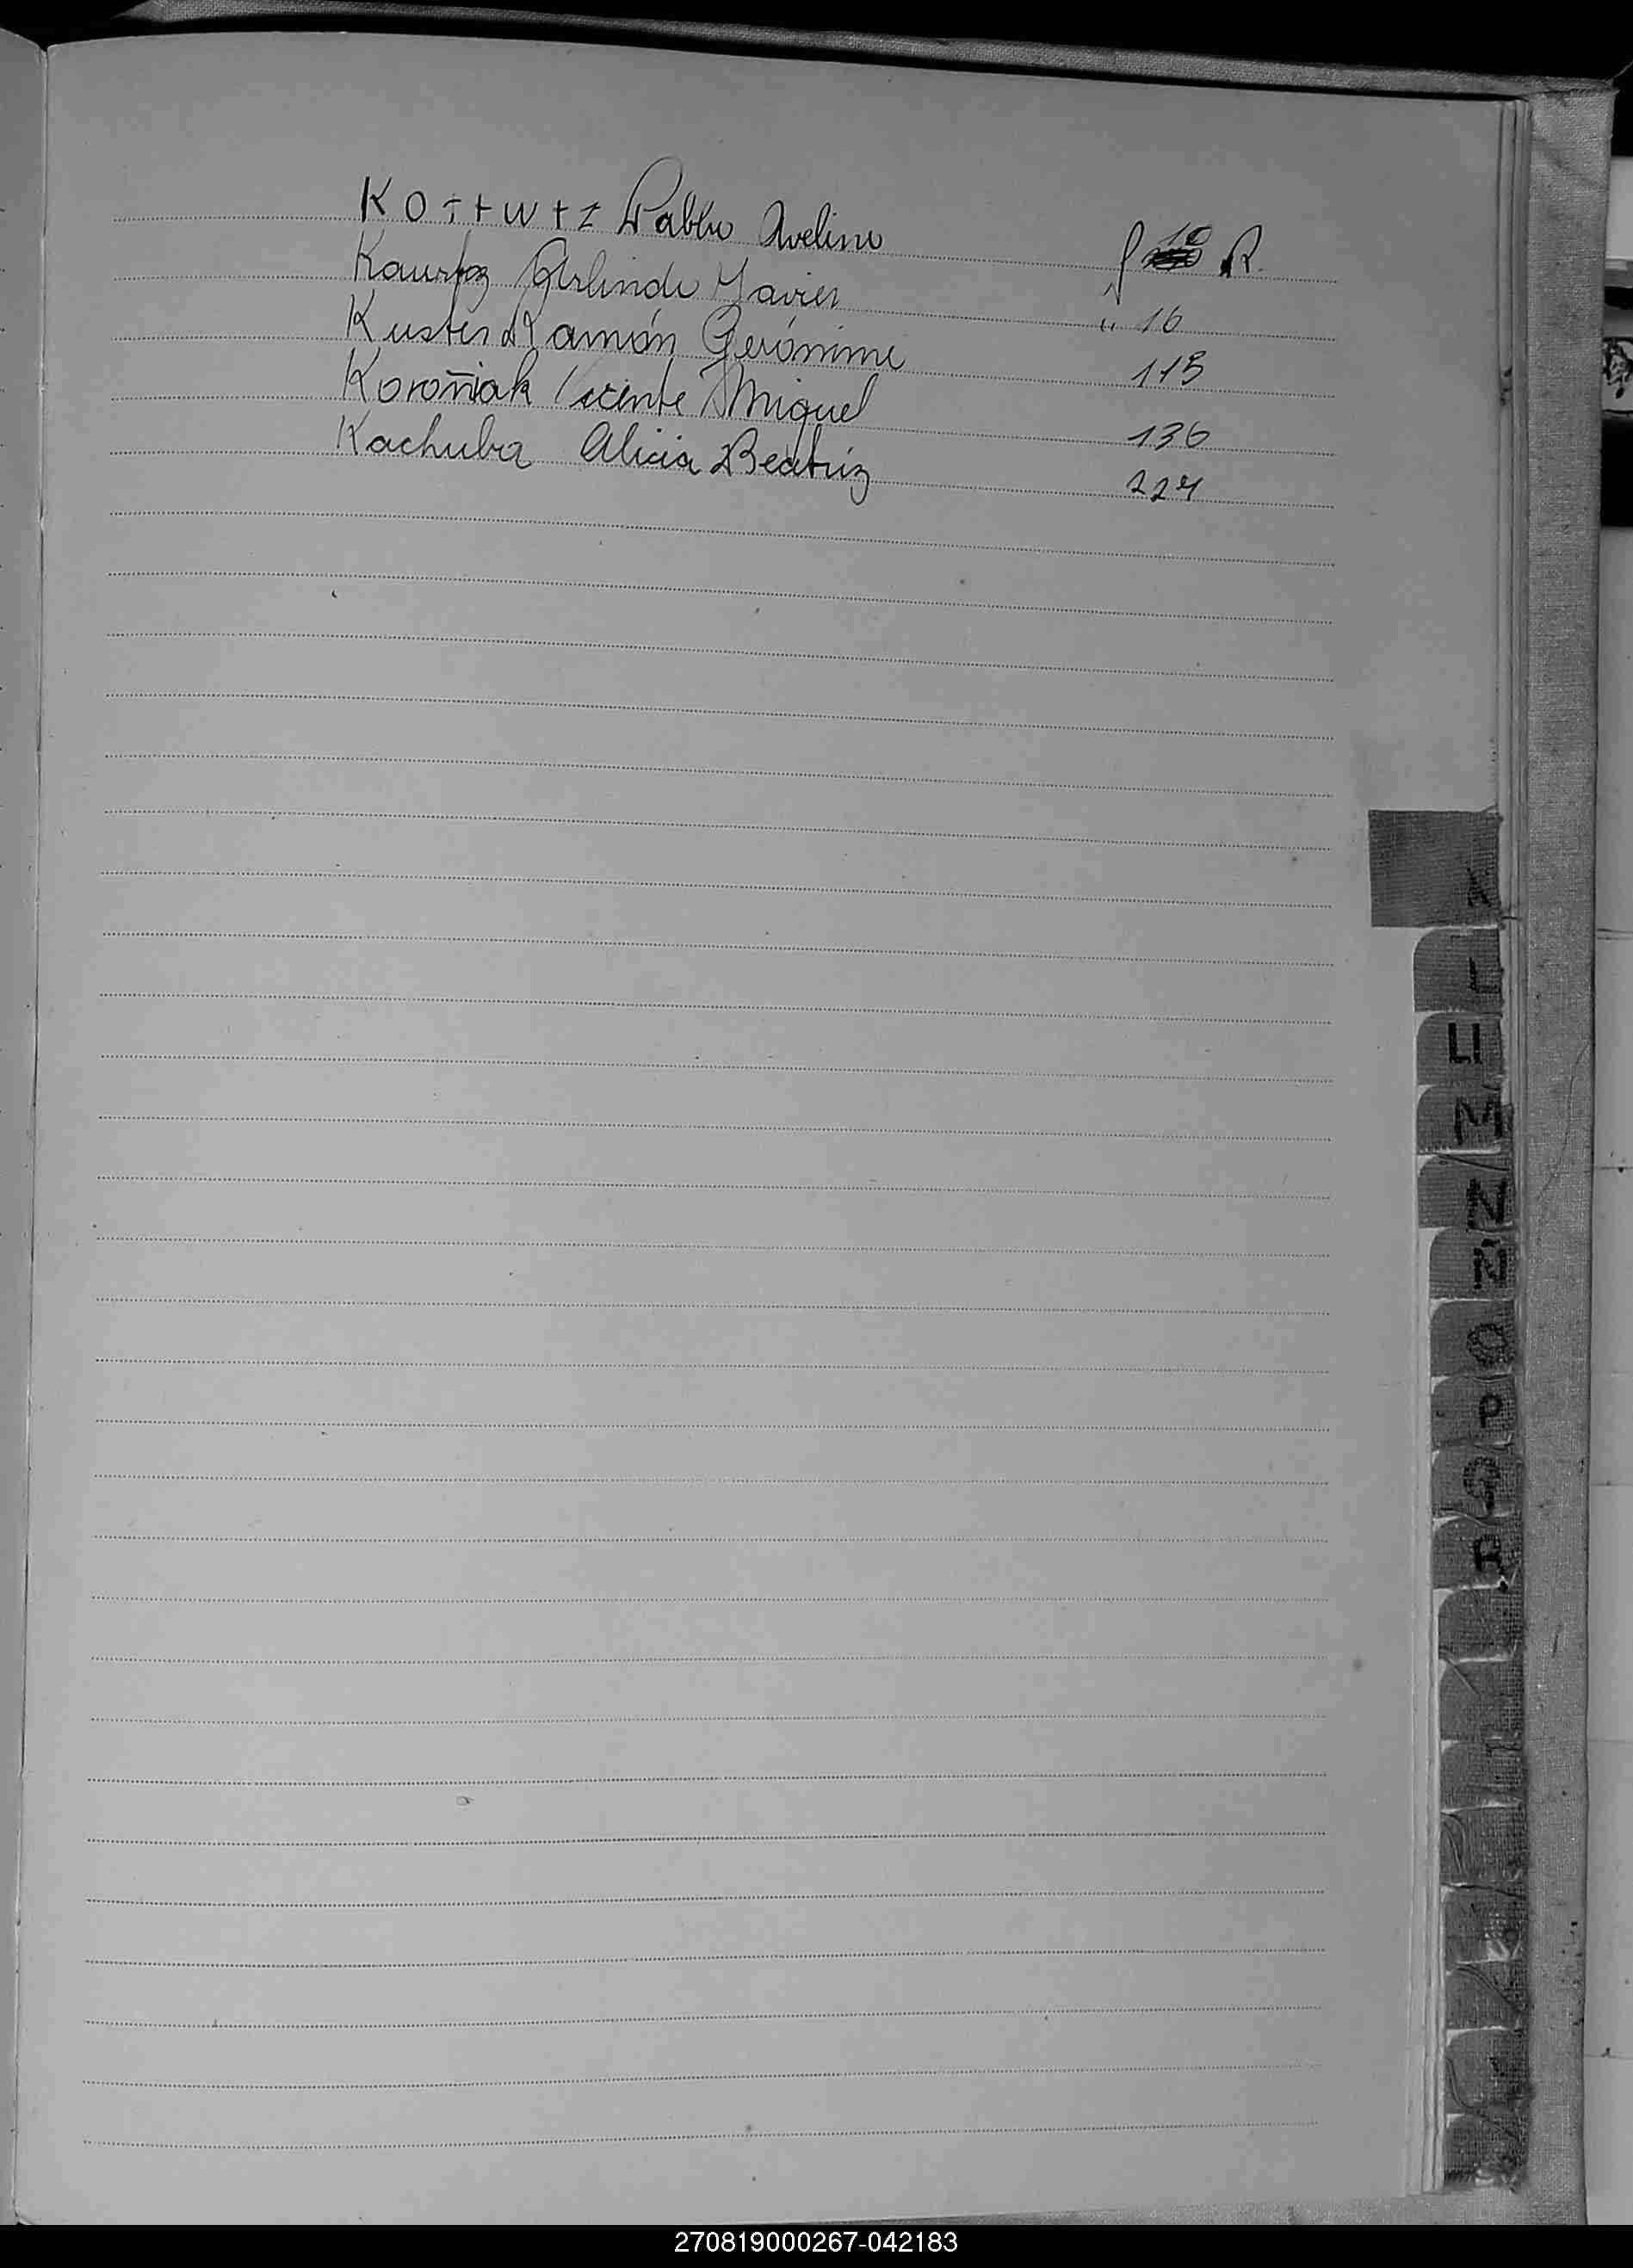 Kottwtz Pablo Avelino f 10 R.
Kaurfoz Arlindo Javier " 16
Kuster Ramón Gerónimo 115
Koroñiak Vicente Miguel 136
Kachuba Alicia Beatriz 227
K
L
LL
M
N
Ñ
O
P
Q
R
270819000267-042183